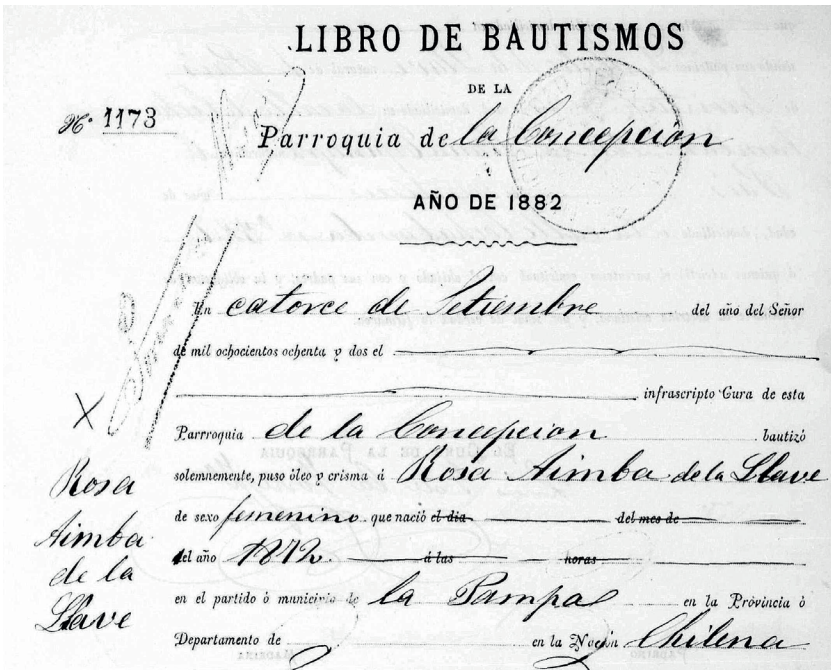 LIBRO DE BAUTISMOS
DE LA
Nº 1173
Parroquia de la Concepcion
AÑO DE 1882
En catorce de Setiembre del año del Señor
de mil ochocientos ochenta y dos el
infrascripto Cura de esta
Parrroquia de la Concepcion bautizó
solemnemente, puso óleo y crisma á Rosa Aimba de la Llave
de sexo femenino que nació el dia del mes de
del año 1872 á las horas
en el partido ó municipio de la Pampa en la Provincia ó
Departamento de en la Nación Chilena
X
Rosa
Aimba
de la
Llave